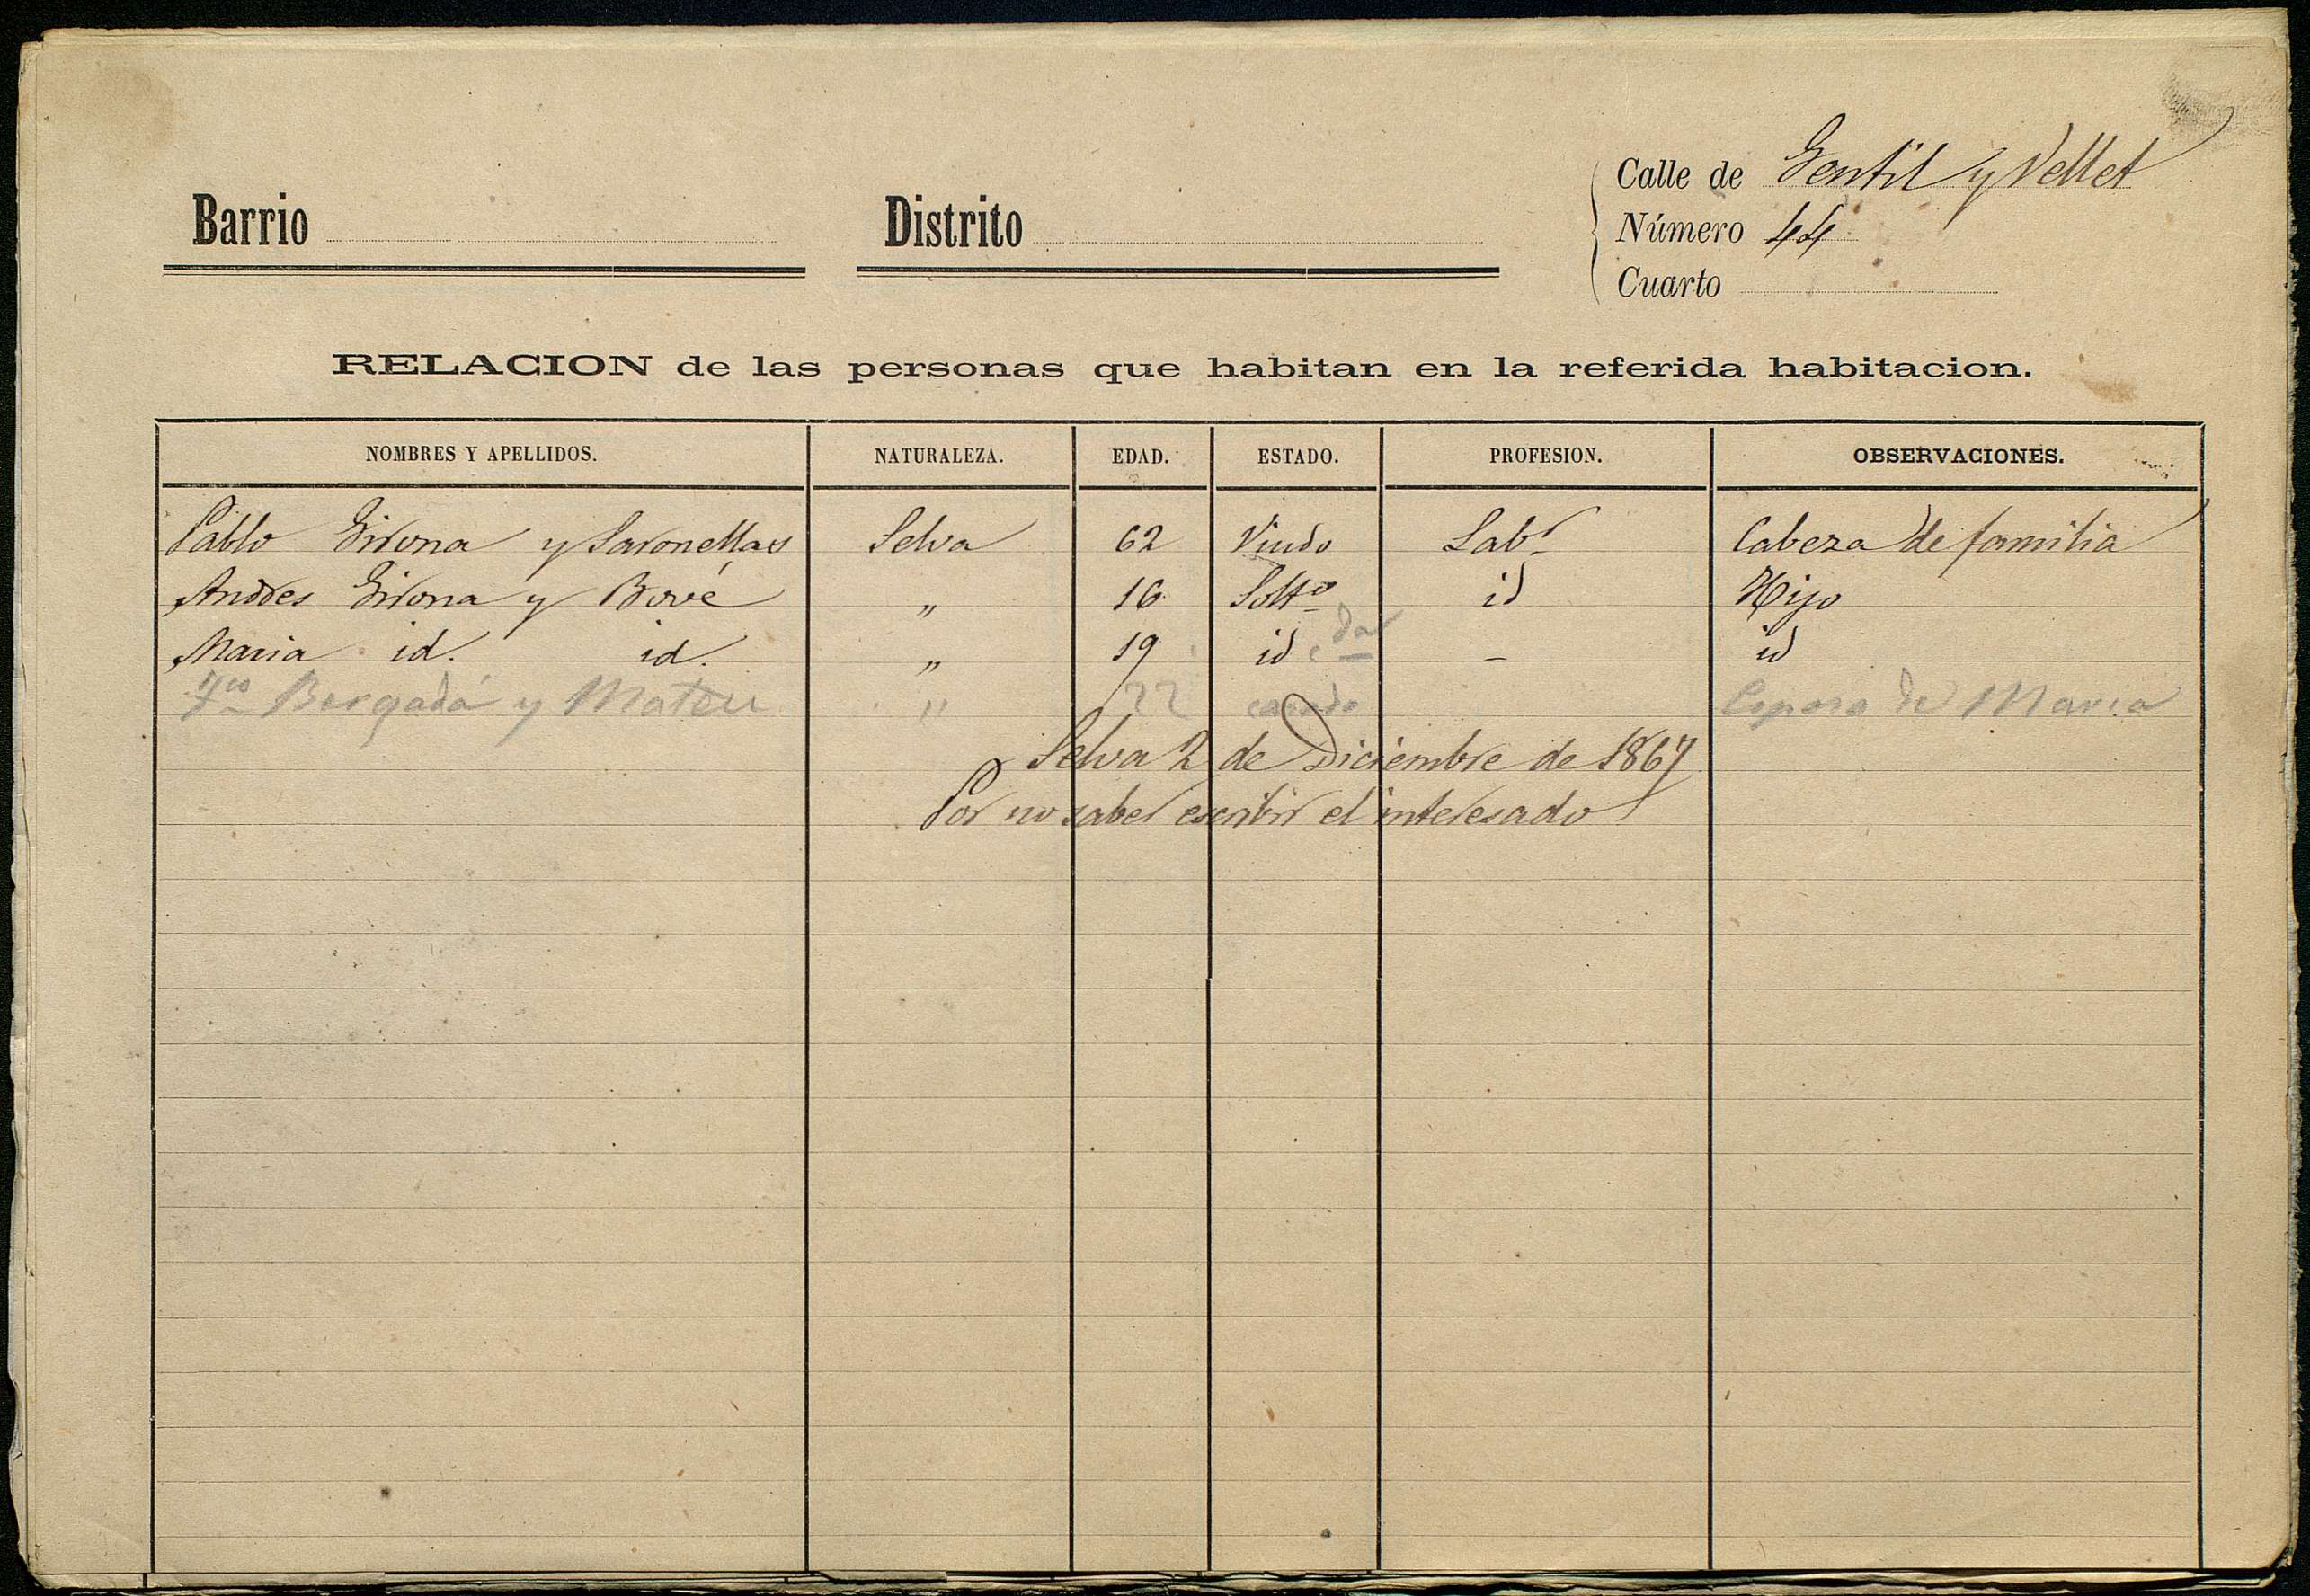 Calle de Gentil y Vellet
Barrio Distrito Número 44
Cuarto
RELACION de las personas que habitan en la referida habitacion.
NOMBRES Y APELLIDOS. NATURALEZA. EDAD. ESTADO. PROFESION. OBSERVACIONES.
Pablo Girona y Saronellas Selva 62 Viudo Labr Cabeza de familia
Andres Girona y Bové " 16 Solto id Hijo
Maria id. id. " 19 id c da - id
Fco Bergadá y Mateu " 22 casado Esposo de Maria
Selva 2 de Diciembre de 1867
Por no saber escribir el interesado